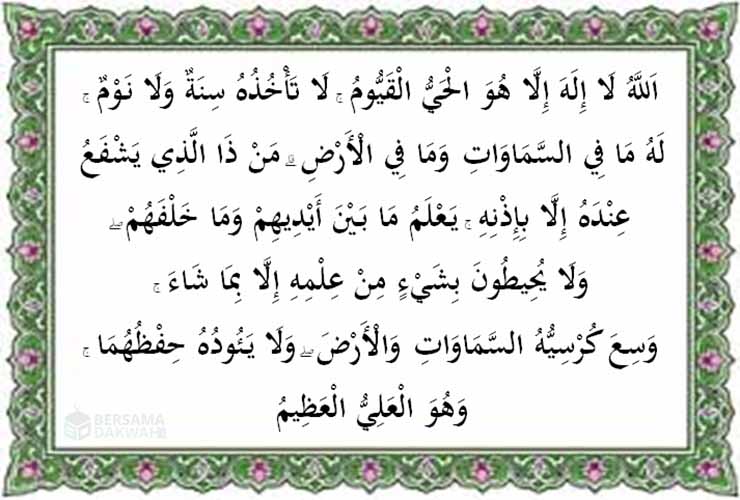 اَللَّهُ لَا إِلَهَ إِلَّا هُوَ الْحَيُّ الْقَيُّومُ ۚ لَا تَأْخُذُهُ سِنَةٌ وَلَا نَوْمٌ ۚ
لَهُ مَا فِي السَّمَاوَاتِ وَمَا فِي الْأَرْضِ ۗ مَنْ ذَا الَّذِي يَشْفَعُ
عِنْدَهُ إِلَّا بِإِذْنِهِ ۚ يَعْلَمُ مَا بَيْنَ أَيْدِيهِمْ وَمَا خَلْفَهُمْ ۖ
وَلَا يُحِيطُونَ بِشَيْءٍ مِنْ عِلْمِهِ إِلَّا بِمَا شَاءَ ۚ
وَسِعَ كُرْسِيُّهُ السَّمَاوَاتِ وَالْأَرْضَ ۖ وَلَا يَئُودُهُ حِفْظُهُمَا ۚ
وَهُوَ الْعَلِيُّ الْعَظِيمُ
BERSAMA
DAKWAH